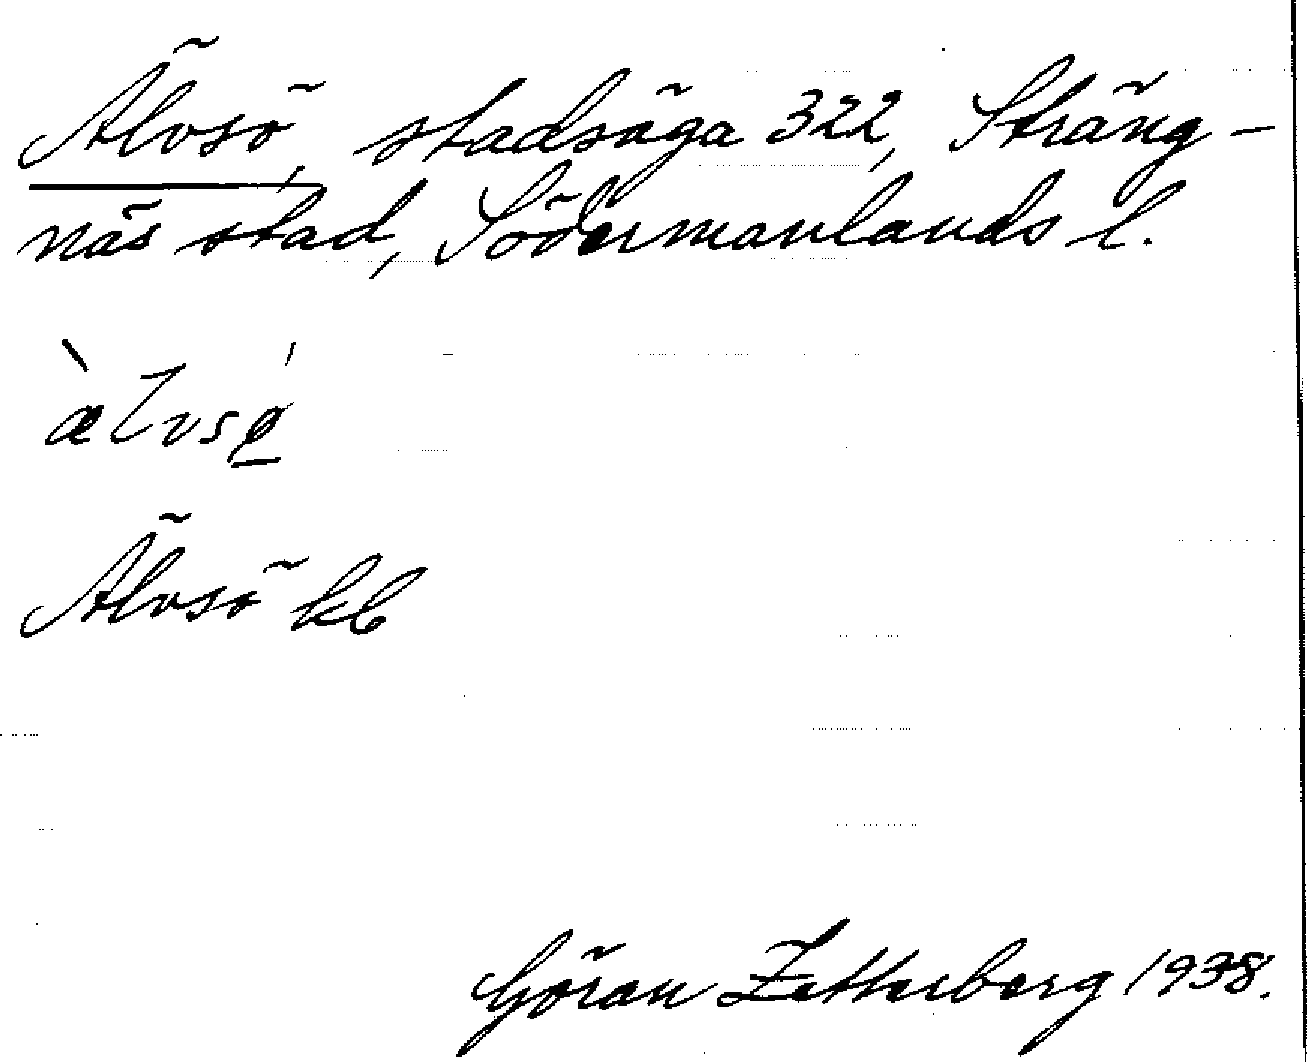 Älvsö, stadsäga 322, Sträng-
näs stad, Södermanlands l.
æ̀lvsǿ̲
Älvsö kb
Göran Zetterberg 1938.